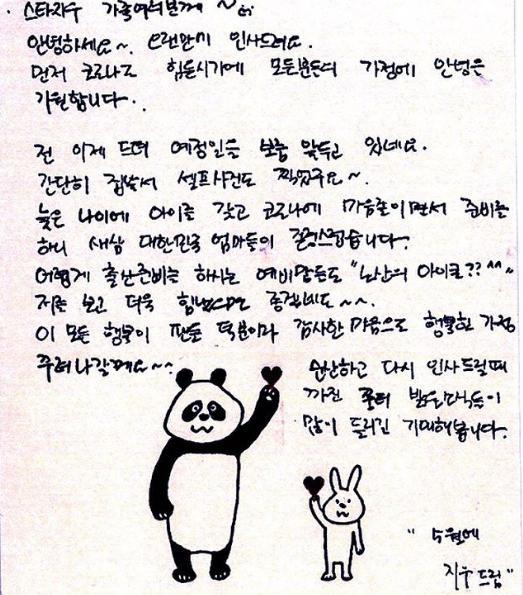 · 스타지우 가족여러분께 ~
안녕하세요~. 오랜만에 인사드려요.
먼저 코로나로 힘든시기에 모든분들의 가정에 안녕을
기원합니다.
전 이제 드뎌 예정일을 보름 앞두고 있네요.
간단히 집에서 셀프사진도 찍었구요~.
늦은 나이에 아이를 갖고 코로나에 마음졸이면서 준비를
하니 새삼 대한민국 엄마들이 존경스럽습니다.
어렵게 출산준비를 하시는 예비맘들도 "노산의 아이콘?? ^^"
저를 보고 더욱 힘내시면 좋겠네요~~.
이 모든 행복이 팬분들 덕분이라 감사한 마음으로 행복한 가정
꾸려나갈께요~~
순산하고 다시 인사드릴때
까진 좀더 밝은소식들이
많이 들리길 기대해봅니다.
" 5월에
지우드림"